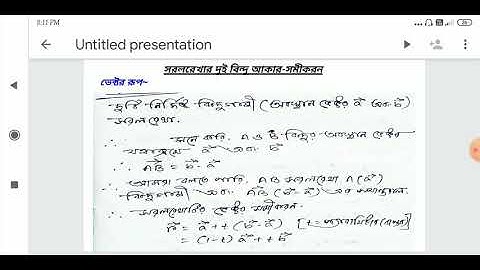 8:11 PM
26
Untitled presentation
সরলরেখার দুই বিন্দু আকার-সমীকরন
ভেক্টর রূপ~
দুটি নির্দিষ্ট বিন্দুগামী (অবস্থান ভেক্টর a⃗ এবং b⃗)
সরলরেখা.
∴ মনে করি, A ও B বিন্দুর অবস্থান ভেক্টর
যথাক্রমে a⃗ এবং b⃗
∴ AB⃗ = b⃗ - a⃗
∴ আমরা বলতে পারি, AB সরলরেখা A(a⃗)
বিন্দুগামী এবং AB⃗ (b⃗ - a⃗) এর সমান্তরাল.
∴ সরলরেখাটির ভেক্টর সমীকরন
r⃗ = a⃗ + t (b⃗-a⃗) [t =
= (1-t) a⃗ + t b⃗